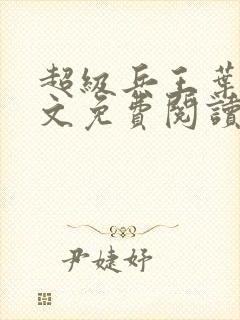 超級兵王葉
文免費閱讀
尹婕妤